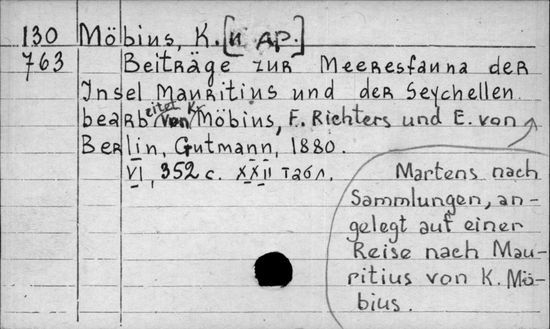 130 Möbius, K. [и др.]
763 Beiträge zur Meeresfauna der
Insel Mauritius und der Seychellen
bearbeitet von K. Möbius, F. Richters und E. von
Berlin, Gutmann, 1880.
VI, 352 с. XXII табл.
Martens nach
Sammlungen, an-
gelegt auf einer
Reise nach Mau-
ritius von K. Mö-
bius.